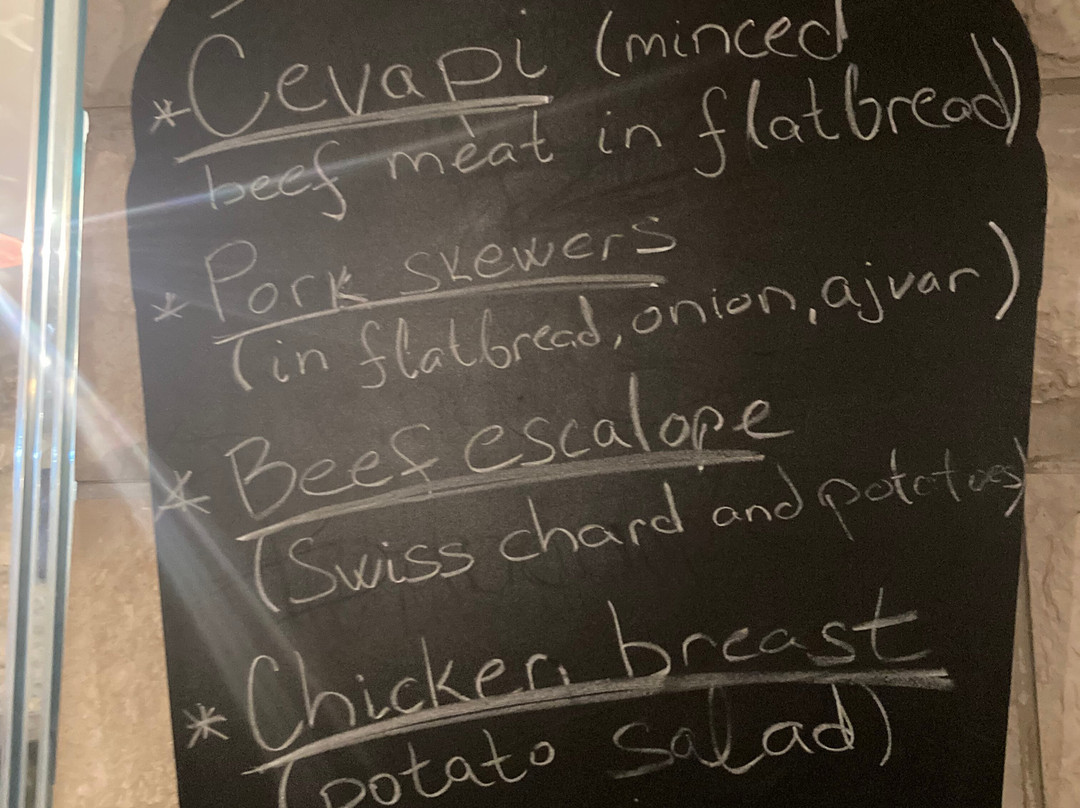 * Cevapi (minced
beef meat in flatbread)
* Pork skewers
(in flatbread, onion, ajvar)
* Beef escalope
(Swiss chard and potatoes)
* Chicken breast
(potato salad)